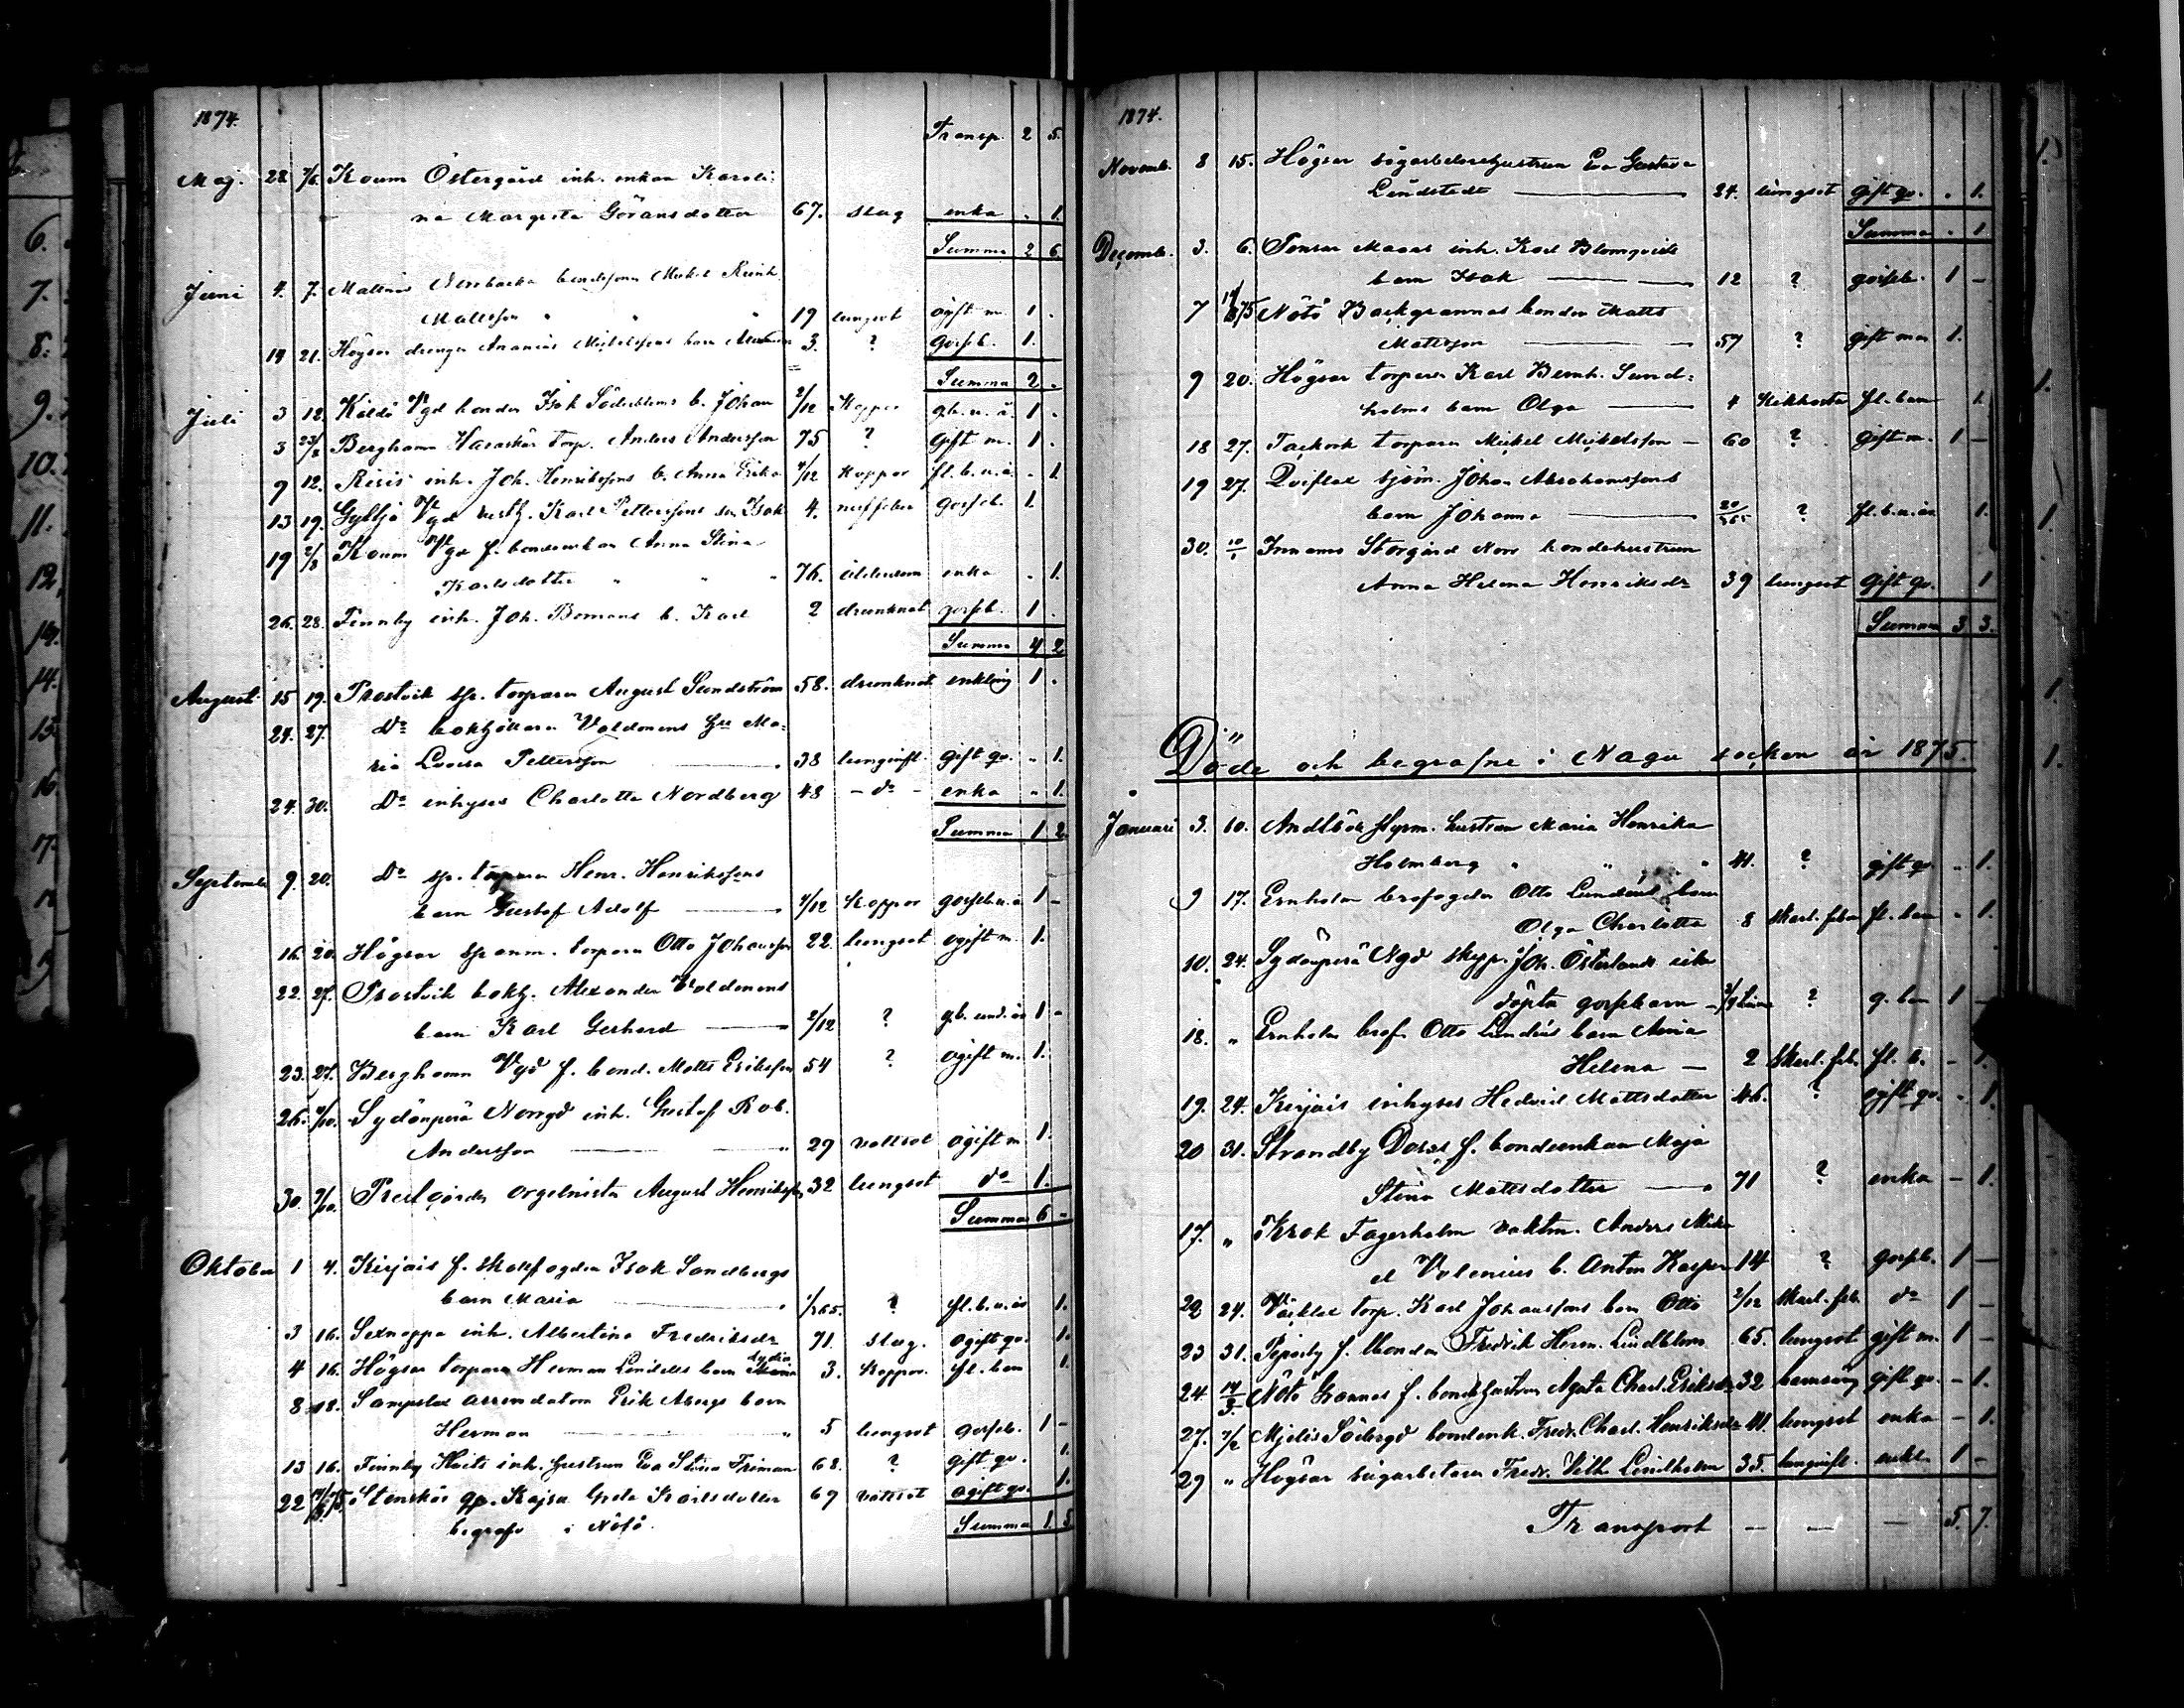 1874.
Transp. 2 5.
Maj. 28 7/6. Koum Östergård inh. enkan Karoli-
na Margreta Göransdotter 67. slag enka . 1.
Summa 2 6.
Juni 4. 7. Mattnäs bondesonen Mickel Reinh.
Mattsson " " " 19 lungsot ogift m. 1 .
19 21. Högsar drengen Ananias Michelssons barn 3. ? gosseb. 1.
Summa 2 .
Juli 3 12. Käldö Vgd bonden Isak Söderbloms b. Johan 2/12 Koppor g.b.u.å. 1 .
3 23/8 Berghamn Haraskär torp. Anders Andersson 75 ? gift m. 1 .
9 12. Risis inh. Joh. Henrikssons b. Anna Erika 4/12 Koppor fl.b.u.å. . 1.
13 19. Gyttja Vgd Karl Petterssons son Isak 4. gosseb. 1
19 2/8 Koum Vgd f. bondeenkan Anna Stina
Karlsdotter " " " 76. ålderdom enka . 1.
26. 28. Finnby inh. Joh. Bomans b. Karl 2 drunknat gosseb. 1 .
Summa 4 2
August 15 19. Prostvik sp. torparen August Sundström 58. drunknat enkling 1 .
24. 27. Do bokhållaren Valdemens hu Ma-
ria Lovisa Pettersson 38 lunginfl. gift qv. . 1.
24. 30. Do inhyses Charlotta Nordberg 48 - do - enka . 1.
Summa 1 2.
September 9. 20. Do sp. torparen Henr. Henrikssons
barn Gustaf Adolf 4/12 Koppor gosseb.u.å 1 -
16. 20. Högsar torparen Otto Johansson 22. lungsot ogift m. 1.
22. 27. Prostvik bokh. Alexander Valdemens
barn Karl Gerhard 2/12 ? gb. und. år 1 -
23. 27. Berghamn Vgd f. bond. Matts Eriksson 54 ? ogift m. 1.
26. 4/10. Sydänperä Norrgd inh. Gustaf Rob.
Andersson 29 vattsot ogift m 1.
30. 7/10. Prestgården orgelnisten August Henriksson 32 lungsot do 1.
Summa 6 -
Oktober 1 4. Kirjais f. skallfogden Isak Sandbergs
barn Maria 1/365. ? fl.b.u.år 1.
3 16. Sexnappa inh. Albertina Fredriksdr 71. slag. ogift qv. 1.
4 16. Högsar torparen Herman Lindells barn Lydia 3. Koppor. fl. barn 1.
8 18. Sampslax arrendatorn Erik Abergs barn
Herman " 5 lungsot gosseb. 1 -
13 16. Finnby inh. hustrun Eva Stina Friman 68. ? gift qv. 1.
22 Stenskär qp. Kajsa Greta Karlsdotter 69 vattsot ogift qv. 1.
begrafv i Nötö. Summa 1. 5.
1874.
Novemb. 8 15. Högsar sågarbetarehustrun Eva Gustava
Lindstedt 24. lungsot gift qv. . 1.
Summa . 1
Decemb. 3. 6. Tensar Masas inh. Karl Blomqvists
barn Isak 12 ? gosseb. 1 -
7 Nötö Backgrannas bonden Matts
Mattsson 57 ? gift man 1.
9 20. Högsar torparen Karl Bernh. Sund-
holms barn Olga 4 Kikhosta fl. barn 1.
18 27. Tackork torparen Mickel Mickelsson - 60 ? gift m. 1 -
19 27. Qviflax sjöm. Johan Abrahamssons
barn Johanna 20/365 ? fl.b.u.år 1.
30. 10/1 Innamo Storgård Norr bondehustrun
Anna Helena Henriksdr 39 lungsot gift qv. 1
Summa 3 3.
Döde och begrafne i Nagu socken år 1875.
Januari 3. 10. Andböte styrm. hustrun Maria Henrika
Holmberg " " " 41. ? gift qv .. 1.
9 17. Ernholm brofogden Otto Lundens barn
Olga Charlotta 8 skarl. feber fl. barn - 1.
10. 24. Sydänperä Ngd skepp. Joh. Österlunds icke
döpta gossebarn ? g. barn 1 -
18. " Ernholm brof. Otto Lundens barn Anna
Helena - 2 Skarl. feb. fl. b. - 1.
19. 24. Kirjais inhyses Hedvid Mattsdotter 46. ? ogift qv. . 1.
20 31. Strandby Dosse f. bondeenkan Maja
Stina Mattsdotter 71 ? enka - 1.
17. " Krok Fagerholm vaktm. Anders Mick-
el Volenius b. Anton Kasper 14 ? gosseb. 1 -
22 24. torp. Karl Johanssons barn Otto 2/12 Skarl. feb. do 1 -
23 31. Piparby f. bonden Fredrik Herm. Lindblom 65. lungsot gift m. 1 -
24. 14/3 Nötö Grannas f. bondehustrun Agata Charl. Eriksdr 32 barnsäng gift qv. - 1.
27. 7/2 Mjelis Södergd bondenk. Fredr. Charl. Henriksdr 41. lungsot enka - 1.
29 " Högsar sågarbetaren Fredr. Vilh. Lindholm 35. lunginfl. enkl. 1 -
Transport - - - 5. 7.